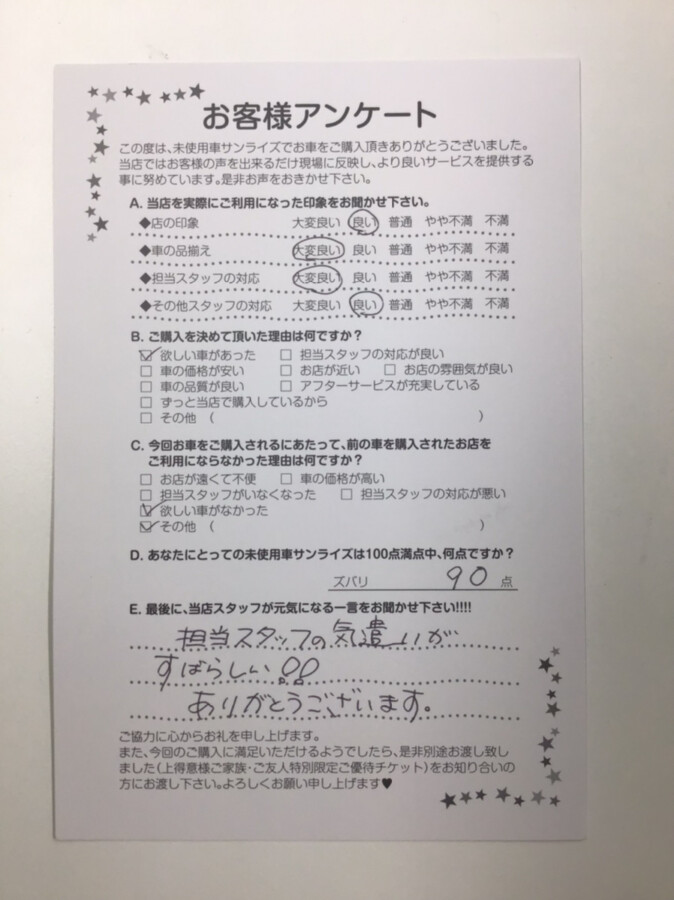 お客様アンケート
この度は、未使用車サンライズでお車をご購入頂きありがとうございました。
当店ではお客様の声を出来るだけ現場に反映し、より良いサービスを提供する
事に努めています。是非お声をおきかせ下さい。
A. 当店を実際にご利用になった印象をお聞かせ下さい。
◆店の印象 大変良い 良い 普通 やや不満 不満
◆車の品揃え 大変良い 良い 普通 やや不満 不満
◆担当スタッフの対応 大変良い 良い 普通 やや不満 不満
◆その他スタッフの対応 大変良い 良い 普通 やや不満 不満
B. ご購入を決めて頂いた理由は何ですか?
☑ 欲しい車があった □ 担当スタッフの対応が良い
□ 車の価格が安い □ お店が近い □ お店の雰囲気が良い
□ 車の品質が良い □ アフターサービスが充実している
□ ずっと当店で購入しているから
□ その他 ( )
C. 今回お車をご購入されるにあたって、前の車を購入されたお店を
ご利用にならなかった理由は何ですか?
□ お店が遠くて不便 □ 車の価格が高い
□ 担当スタッフがいなくなった □ 担当スタッフの対応が悪い
☑ 欲しい車がなかった
☑ その他 ( )
D. あなたにとっての未使用車サンライズは100点満点中、何点ですか?
ズバリ 90 点
E. 最後に、当店スタッフが元気になる一言をお聞かせ下さい!!!!
担当スタッフの気遣いが
すばらしい!!
ありがとうございます。
ご協力に心からお礼を申し上げます。
また、今回のご購入に満足いただけるようでしたら、是非別途お渡し致し
ました(上得意様ご家族・ご友人特別限定ご優待チケット)をお知り合いの
方にお渡し下さい。よろしくお願い申し上げます♥